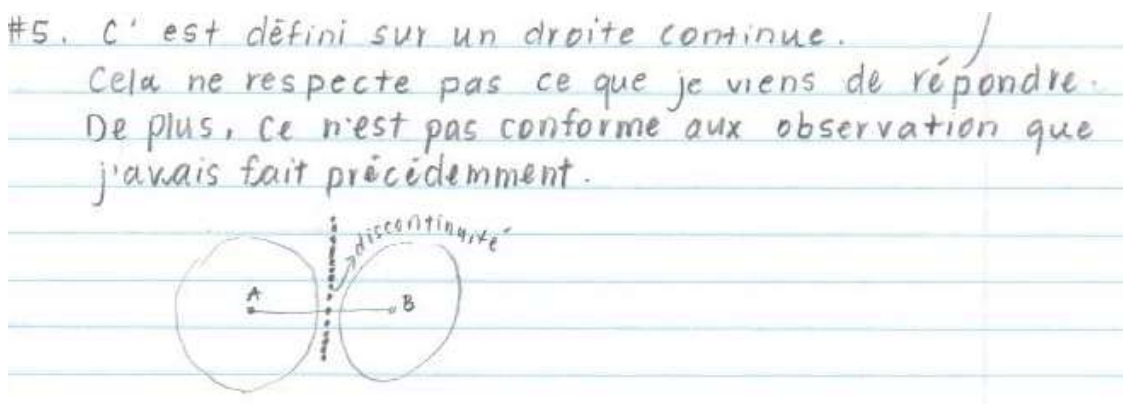 #5. C'est défini sur un droite continue.
Cela ne respecte pas ce que je viens de répondre.
De plus, ce n'est pas conforme aux observation que
j'avais fait précédemment.
discontinuité
A
B